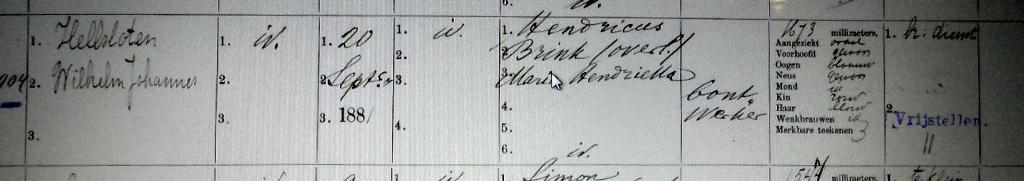 6.
904
1. Hellsloten
2. Wilhelm Johannes
3.
1. id.
2.
3.
1. 20
2. Septr
3. 1881
1. id.
2.
3.
4.
1. Hendricus
2. Brink (overl.)
3. Maria Hendrietta
4.
5.
6. id.
Simon
bont
werker
1673 millimeters.
Aangezicht ovaal
Voorhoofd gewoon
Oogen blauw
Neus gewoon
Mond id
Kin rond
Haar blond
Wenkbrauwen id
Merkbare teekenen
1547 millimeters.
1. br: dienst
2. Vrijstellen
11
1. te klein